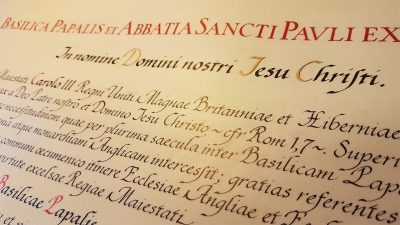 BASILICA PAPALIS ET ABBATIA SANCTI PAVLI EX
In nomine Domini nostri Jesu Christi.
Maiestati Carolo III Regni Uniti Magnae Britanniae et Hiberniae
a Deo Patre nostro et Domino Jesu Christo ~ cfr Rom 1,7 ~. Superi
necessitudinem quae per plurima saecula inter Basilicam Papa
atque monarchiam Anglicam intercessit; gratias referentes
communi oecumenico itinere Ecclesiae Angliae et
excelsae Regiae Maiestati
Basilicae Papalis